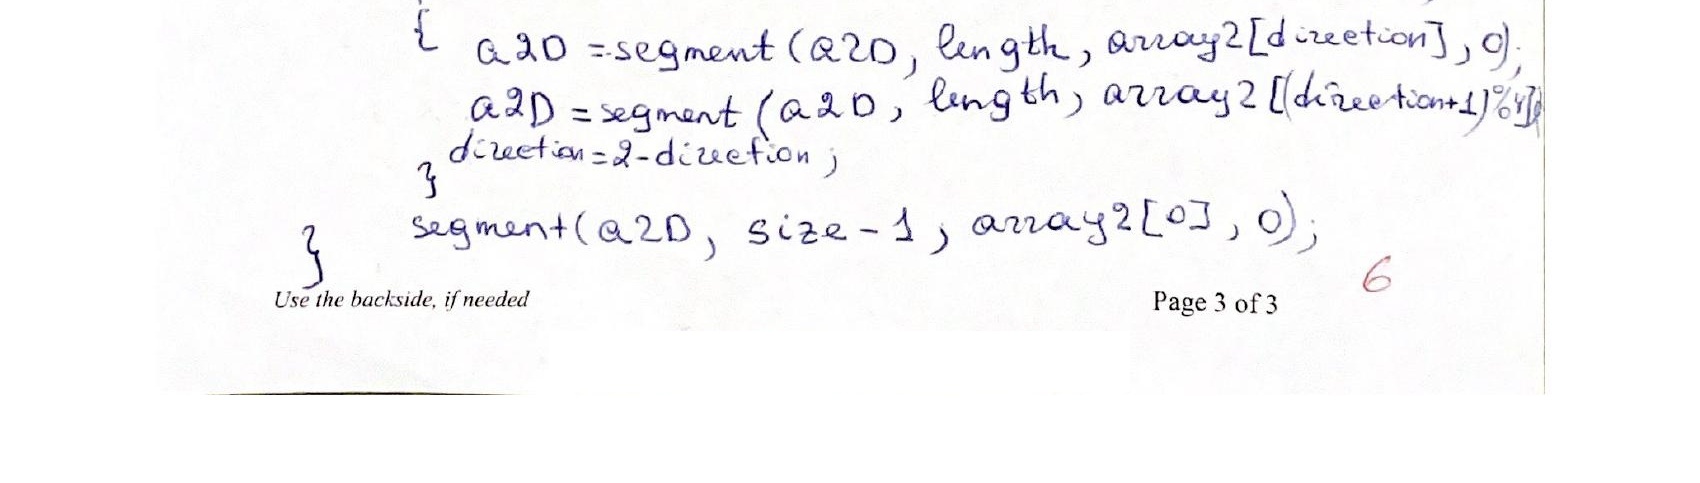 { a2D = segment(a2D, length, array2[direction], 0);
a2D = segment(a2D, length, array2[(direction+1)%4],
direction = 2-direction;
}
segment(a2D, size-1, array2[0], 0);
}
6
Use the backside, if needed Page 3 of 3